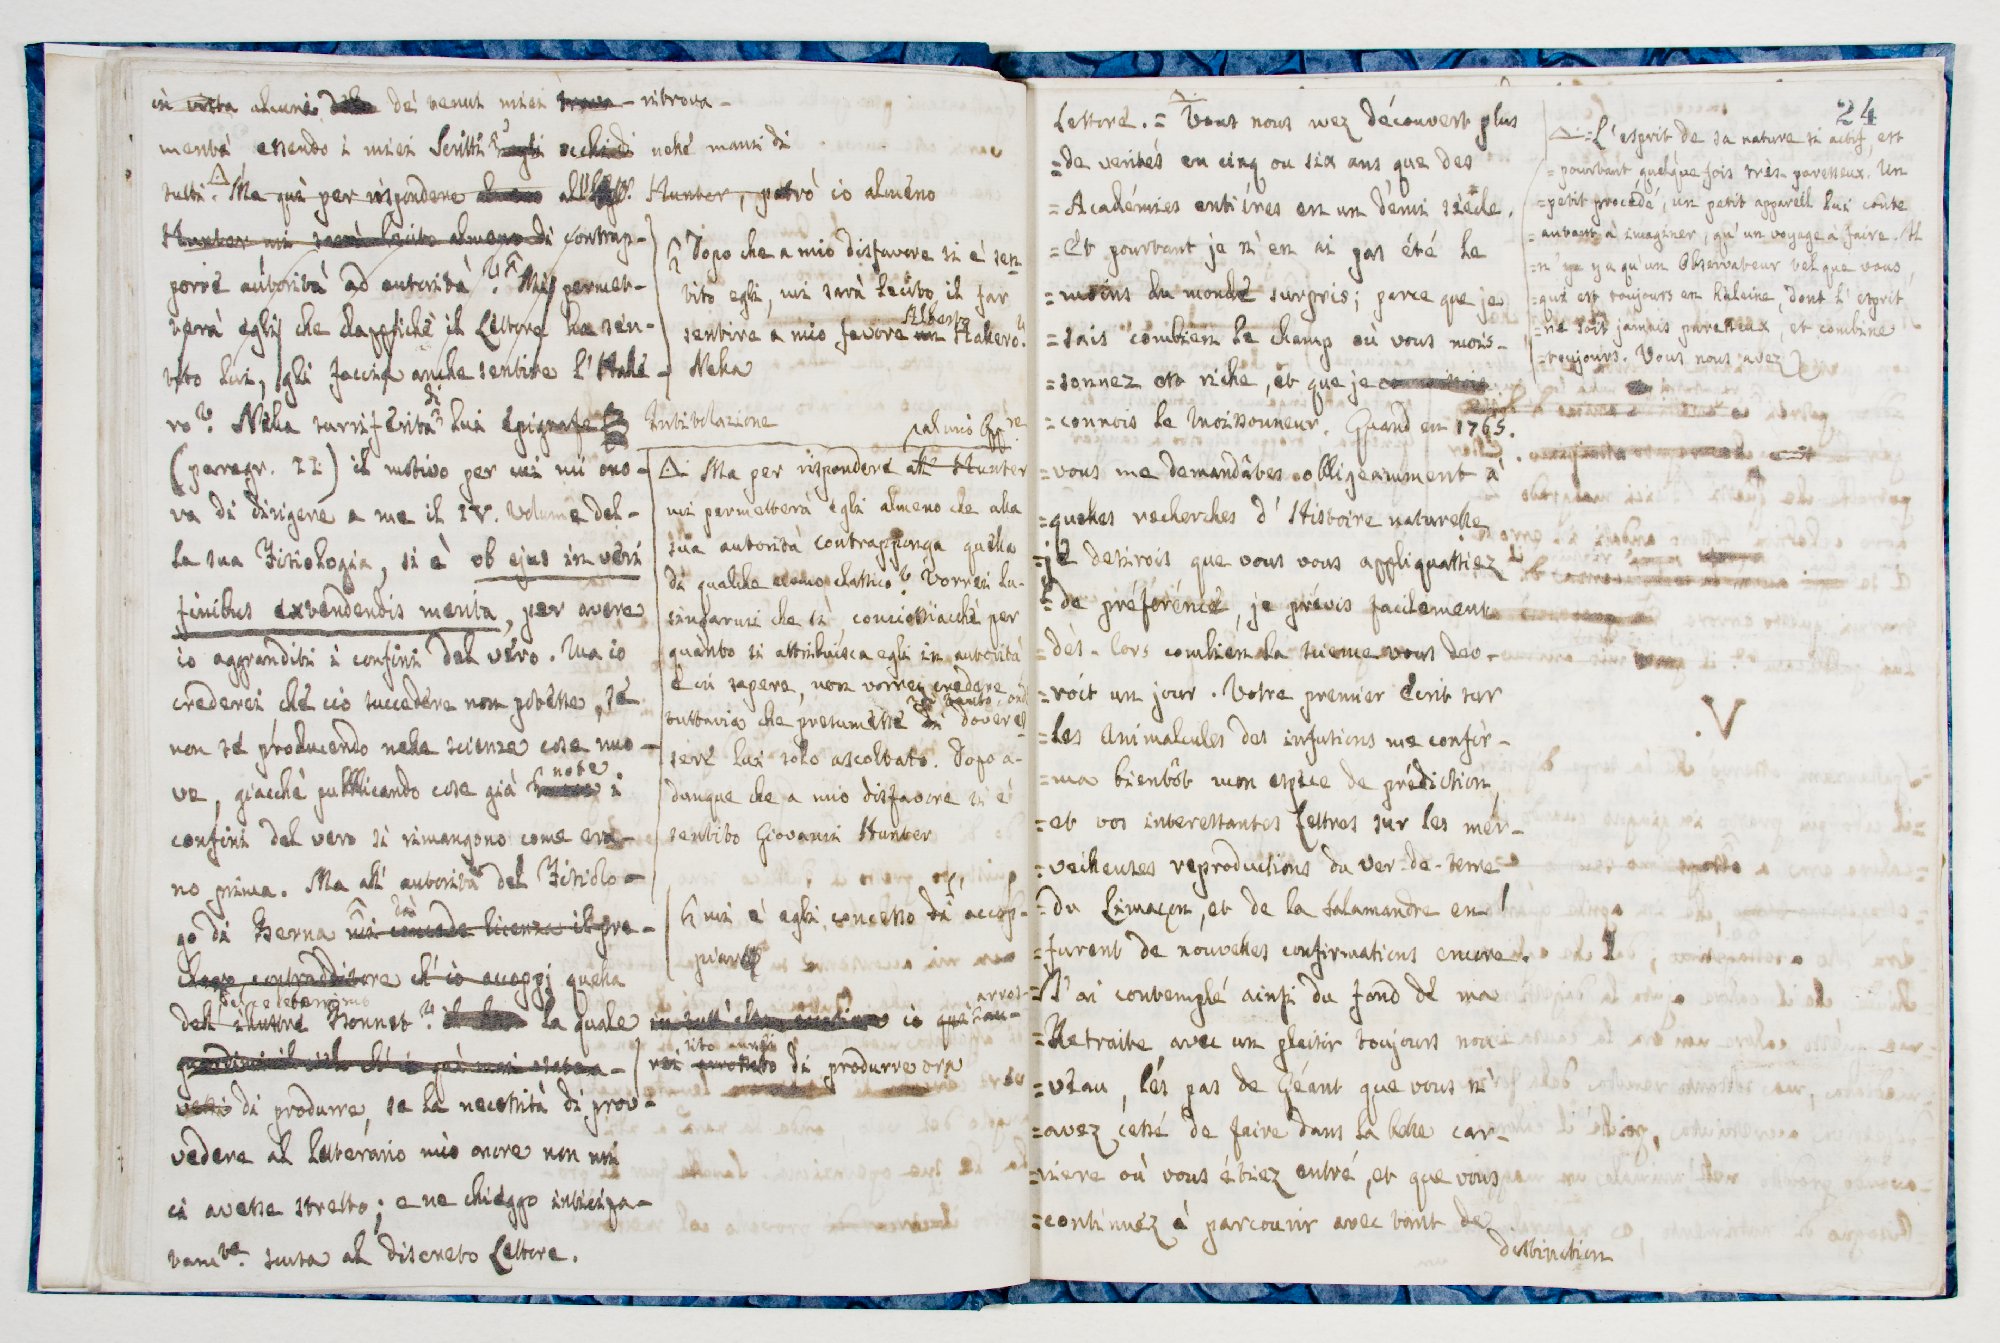 in vista alcuni de' tenui miei ritrova-
menti essendo i miei Scritti nelle mani di
tutti. Ma quì per rispondere all' Hunter, potrò io almeno
Hunter mi sarà lecito almeno di contrap-
porre autorità ad autorità? Mi permet-
terà egli che dappoichè il Lettore ha sen-
tito lui, gli faccia anche sentire l'Halle-
ro? Nella surriferita di lui Epigrafe
(paragr. II) il motivo per cui mi ono-
ra di dirigere a me il IV. Volume del-
la sua Fisiologia, si è ob ejus in veri
finibus extendendis merita, per avere
io aggranditi i confini del vero. Ma io
crederei che ciò succedere non potesse, se
non se producendo nelle scienze cose nuo-
ve, giacchè pubblicando cose già note i
confini del vero si rimangono come era-
no prima. Ma all' autorità del Fisiolo-
go di Berna mi licenza il pre-
contradditore ch' io accoppj quella
dell' illustre Bonnet? la quale io
di produrre, se la necessità di prov-
vedere al letterario mio onore non mi
ci avesse stretto; e ne chieggo anticipa-
tam.te scusa al discreto Lettore.
Dopo che a mio disfavore si è sen
tito egli, mi sarà lecito il far
sentire a mio favore Alberto Hallero?
Nella
Intitolazione
al mio
Ma per rispondere all' Hunter
mi permetterà egli almeno che alla
sua autorità contrapponga quella
di qualche uomo classico? Vorrei lu-
singarmi che sì conciossiacchè per
quanto si attribuisca egli in autorità
e in sapere, non vorrei credere
tuttavia che presumesse di dover es
sere lui solo ascoltato. Dopo a-
dunque che a mio disfavore si è
sentito Giovanni Hunter
mi è egli concesso di accop-
piare
di produrre ora
Lettore. = Vous nous avez découvert plus
=de verités en cinq ou six ans que des
=Académies entiéres en un demi siécle.
=Et pourtant je n'en ai pas été le
=moins du monde surpris; parce que je
=sais combien le champ où vous mois-
=sonnez est riche, et que je
=connois le Moissonneur. Quand en 1765.
=vous me demandâtes obligeamment à
=quelles recherches d'Histoire naturelle
=je desirois que vous vous appliquassiez
=de préférence, je prévis facilement
=dès-lors combien la science vous dev-
=roit un jour. Votre premier écrit sur
=les Animalcules des infusions me confir-
=ma bientôt mon espéce de prédiction,
=et vos interessantes Lettres sur les mer-
=veilleuses reproductions du ver-de-terre
=du Limaçon, et de la Salamandre en
=furent de nouvelles confirmations encore.
=J'ai contemplé ainsi du fond de ma
=Retraite avec un plaisir toujours nou
=veau, les pas de Géant que vous n'
=avez cessé de faire dans la belle car-
=riere où vous étiez entré, et que vous
=continuez à parcourir avec tant de
distinction
24
=L'esprit de sa nature si actif, est
=pourtant quelque fois très-paresseux. Un
=petit procédé, un petit appareil lui coûte
=autant à imaginer, qu'un voyage à faire. Il
=n'y a qu'un Observateur tel que vous,
=qui est toujours en haleine, dont l'esprit
=ne soit jamais paresseux, et combine
=toujours. Vous nous avez
V